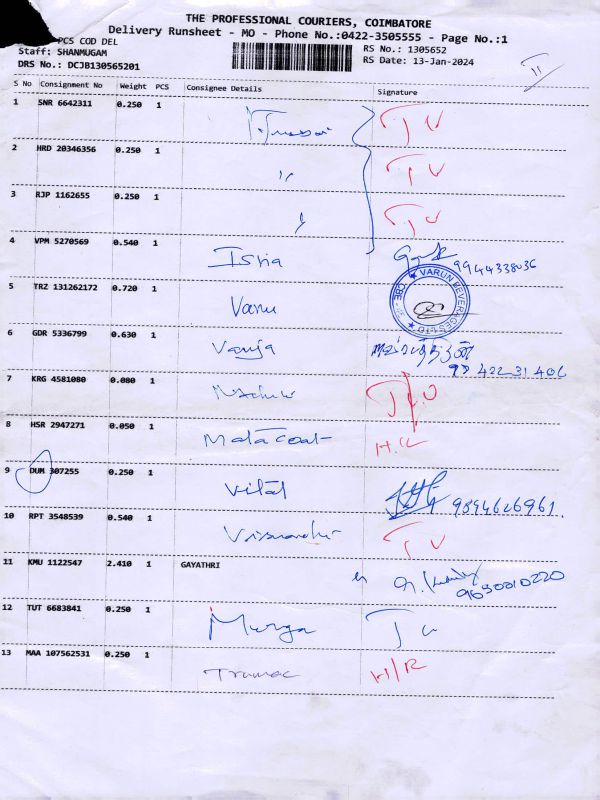 THE PROFESSIONAL COURIERS, COIMBATORE
Delivery Runsheet - MO - Phone No.:0422-3505555 - Page No.:1
PCS COD DEL
Staff: SHANMUGAM RS No.: 1305652
DRS No.: DCJB130565201 RS Date: 13-Jan-2024
S No Consignment No Weight PCS Consignee Details Signature
1 SNR 6642311 0.250 1 T U
2 HRD 20346356 0.250 1 " T U
3 RJP 1162655 0.250 1 T U
4 VPM 5270569 0.540 1 Isha 9944338036
5 TRZ 131262172 0.720 1 Varu VARUN BEVERAGES LTD CBE
6 GDR 5336799 0.630 1 Vanja 98 422 31 406
7 KRG 4581080 0.080 1
8 HSR 2947271 0.050 1 Mala Coat H.R
9 DUM 307255 0.250 1 Vital 9894626961.
10 RPT 3548539 0.540 1 T U
11 KMU 1122547 2.410 1 GAYATHRI 9630010220
12 TUT 6683841 0.250 1 Murga T U
13 MAA 107562531 0.250 1 Trumac H/R